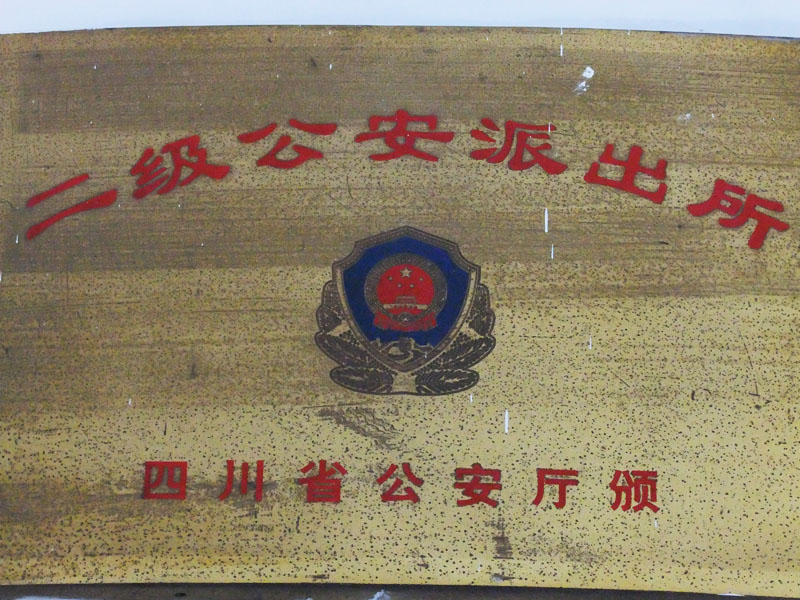 二级公安派出所
四川省公安厅颁